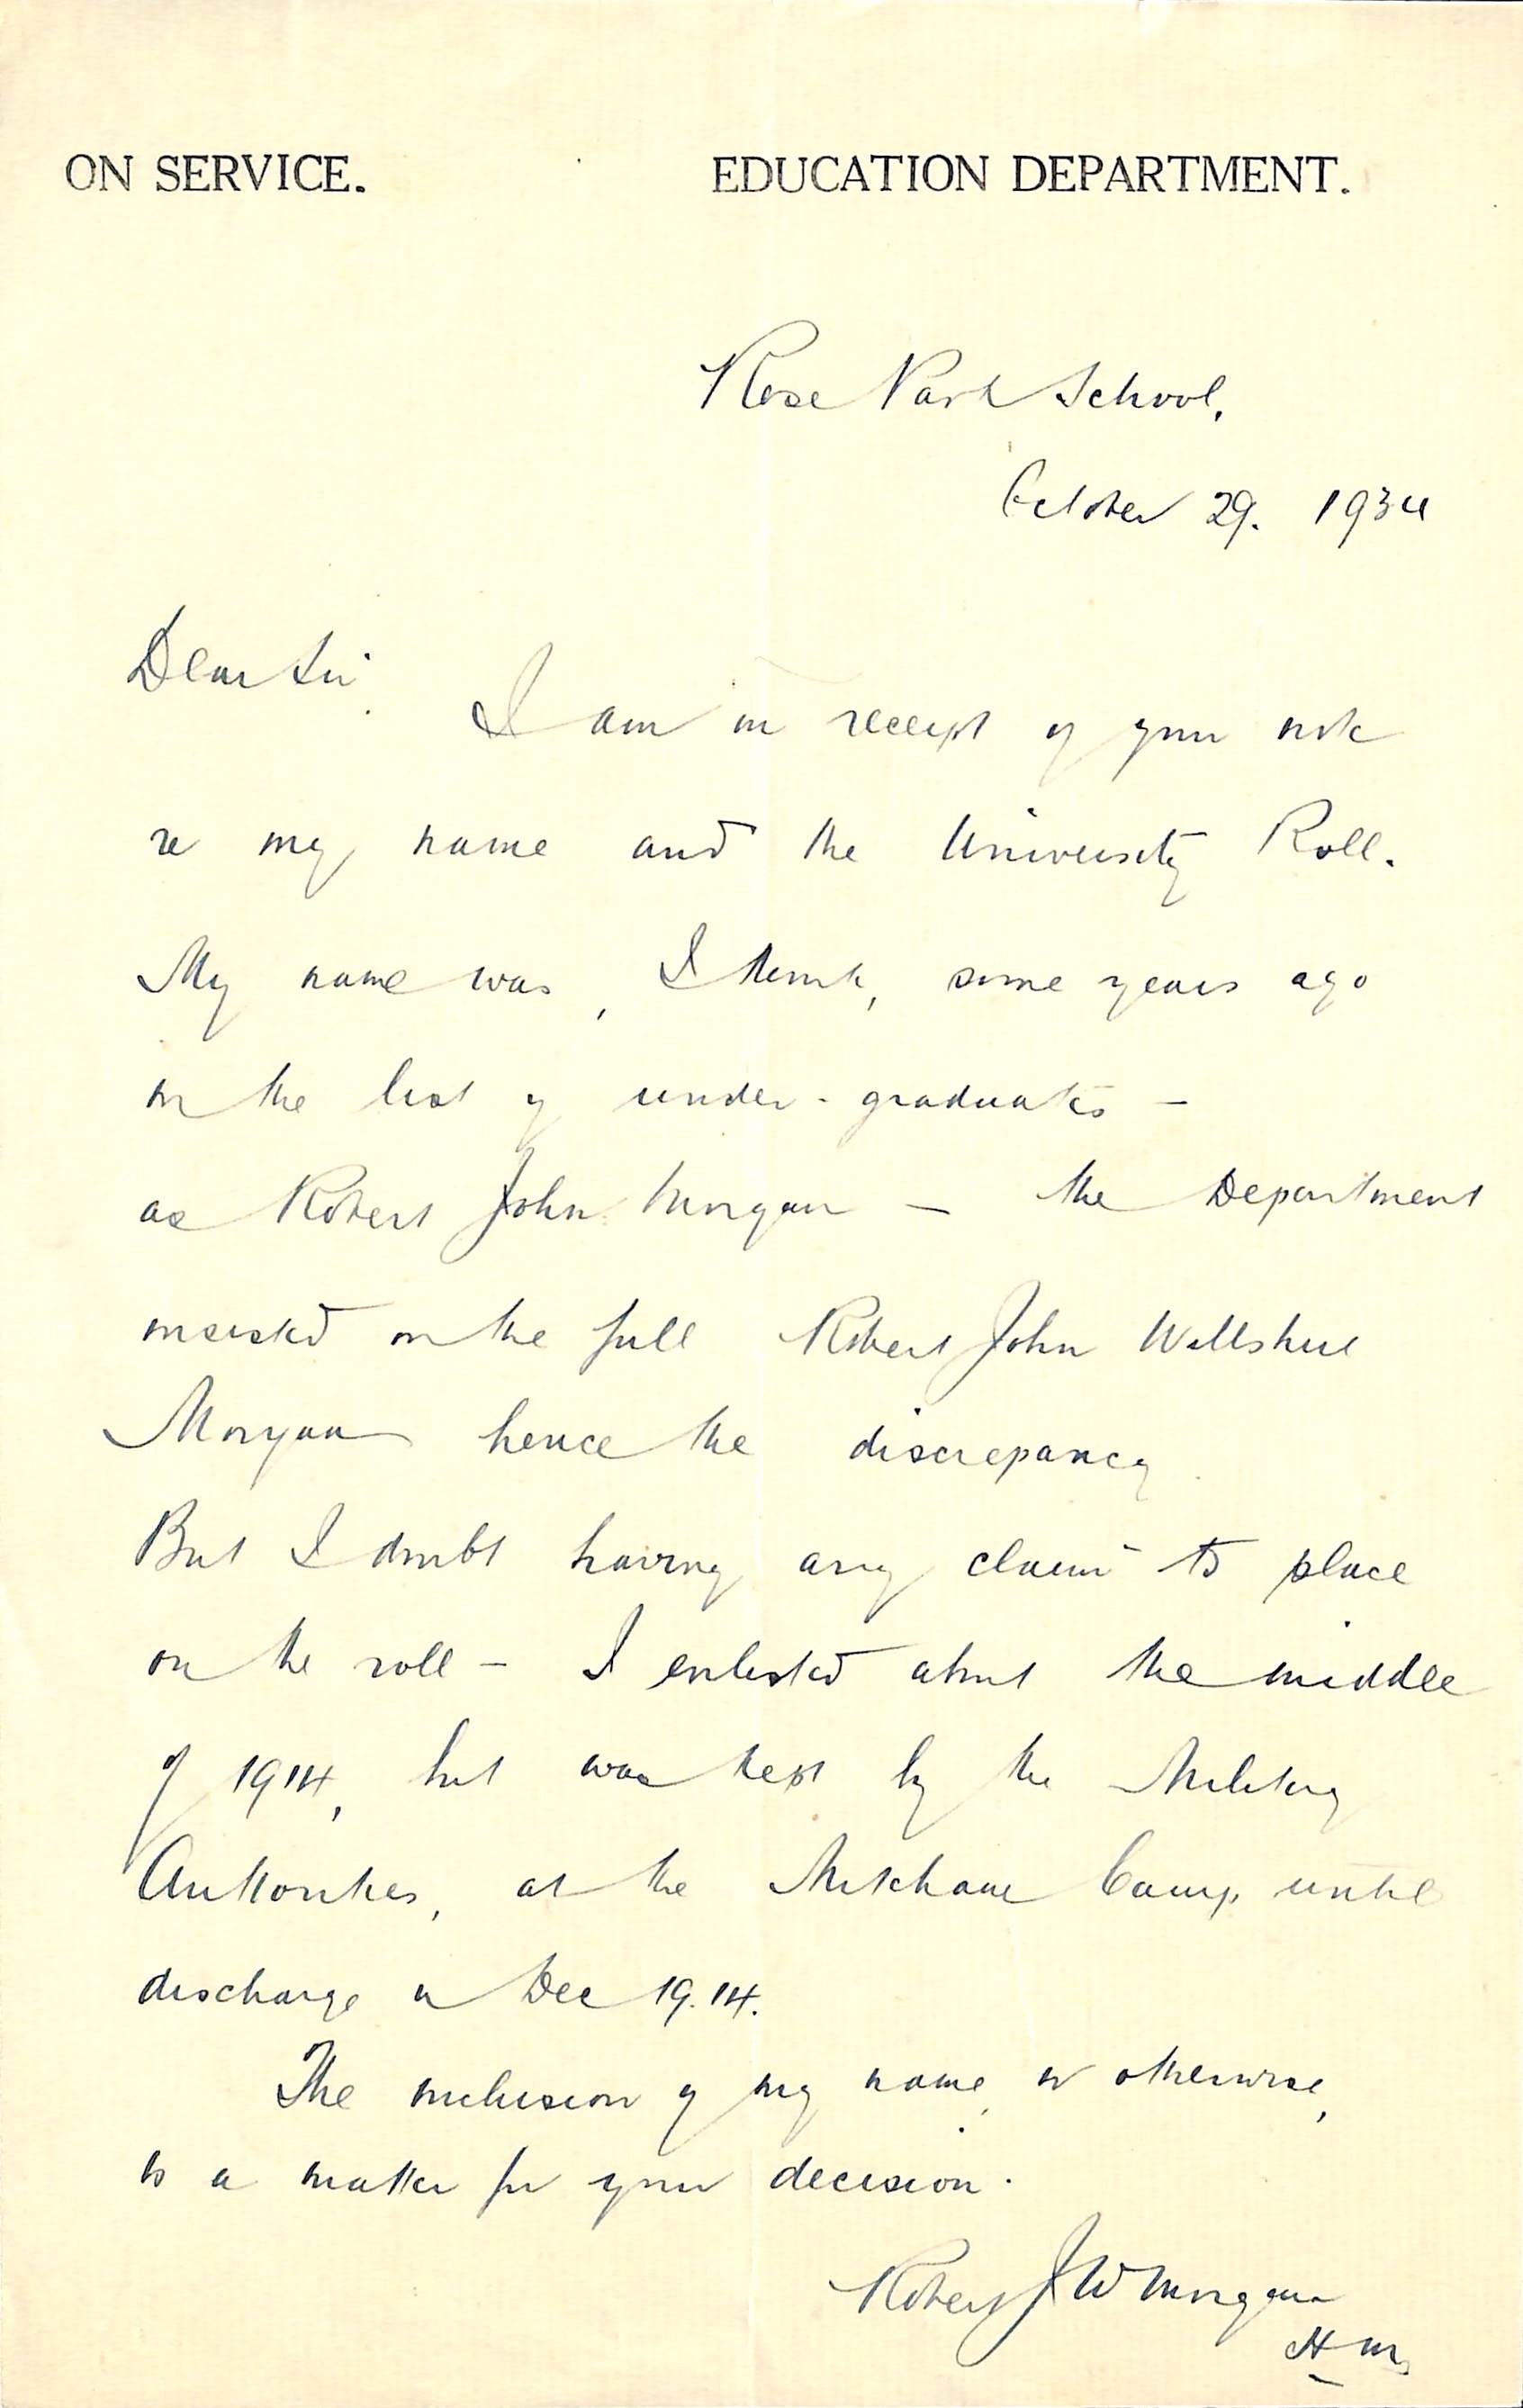 ON SERVICE. EDUCATION DEPARTMENT.
Rose Park School,
October 29. 1934
Dear Sir,
I am in receipt of your note
re my name and the University Roll.
My name was, I think, some years ago
on the list of under-graduates –
as Robert John Morgan – the Department
insisted on the full Robert John Willshire
Morgan hence the discrepancy.
But I doubt having any claim to place
on the roll – I enlisted about the middle
of 1914, but was kept by the Military
Authorities, at the Mitcham Camp until
discharge in Dec 19.14.
The inclusion of my name, or otherwise,
is a matter for your decision.
Robert J W Morgan
H M